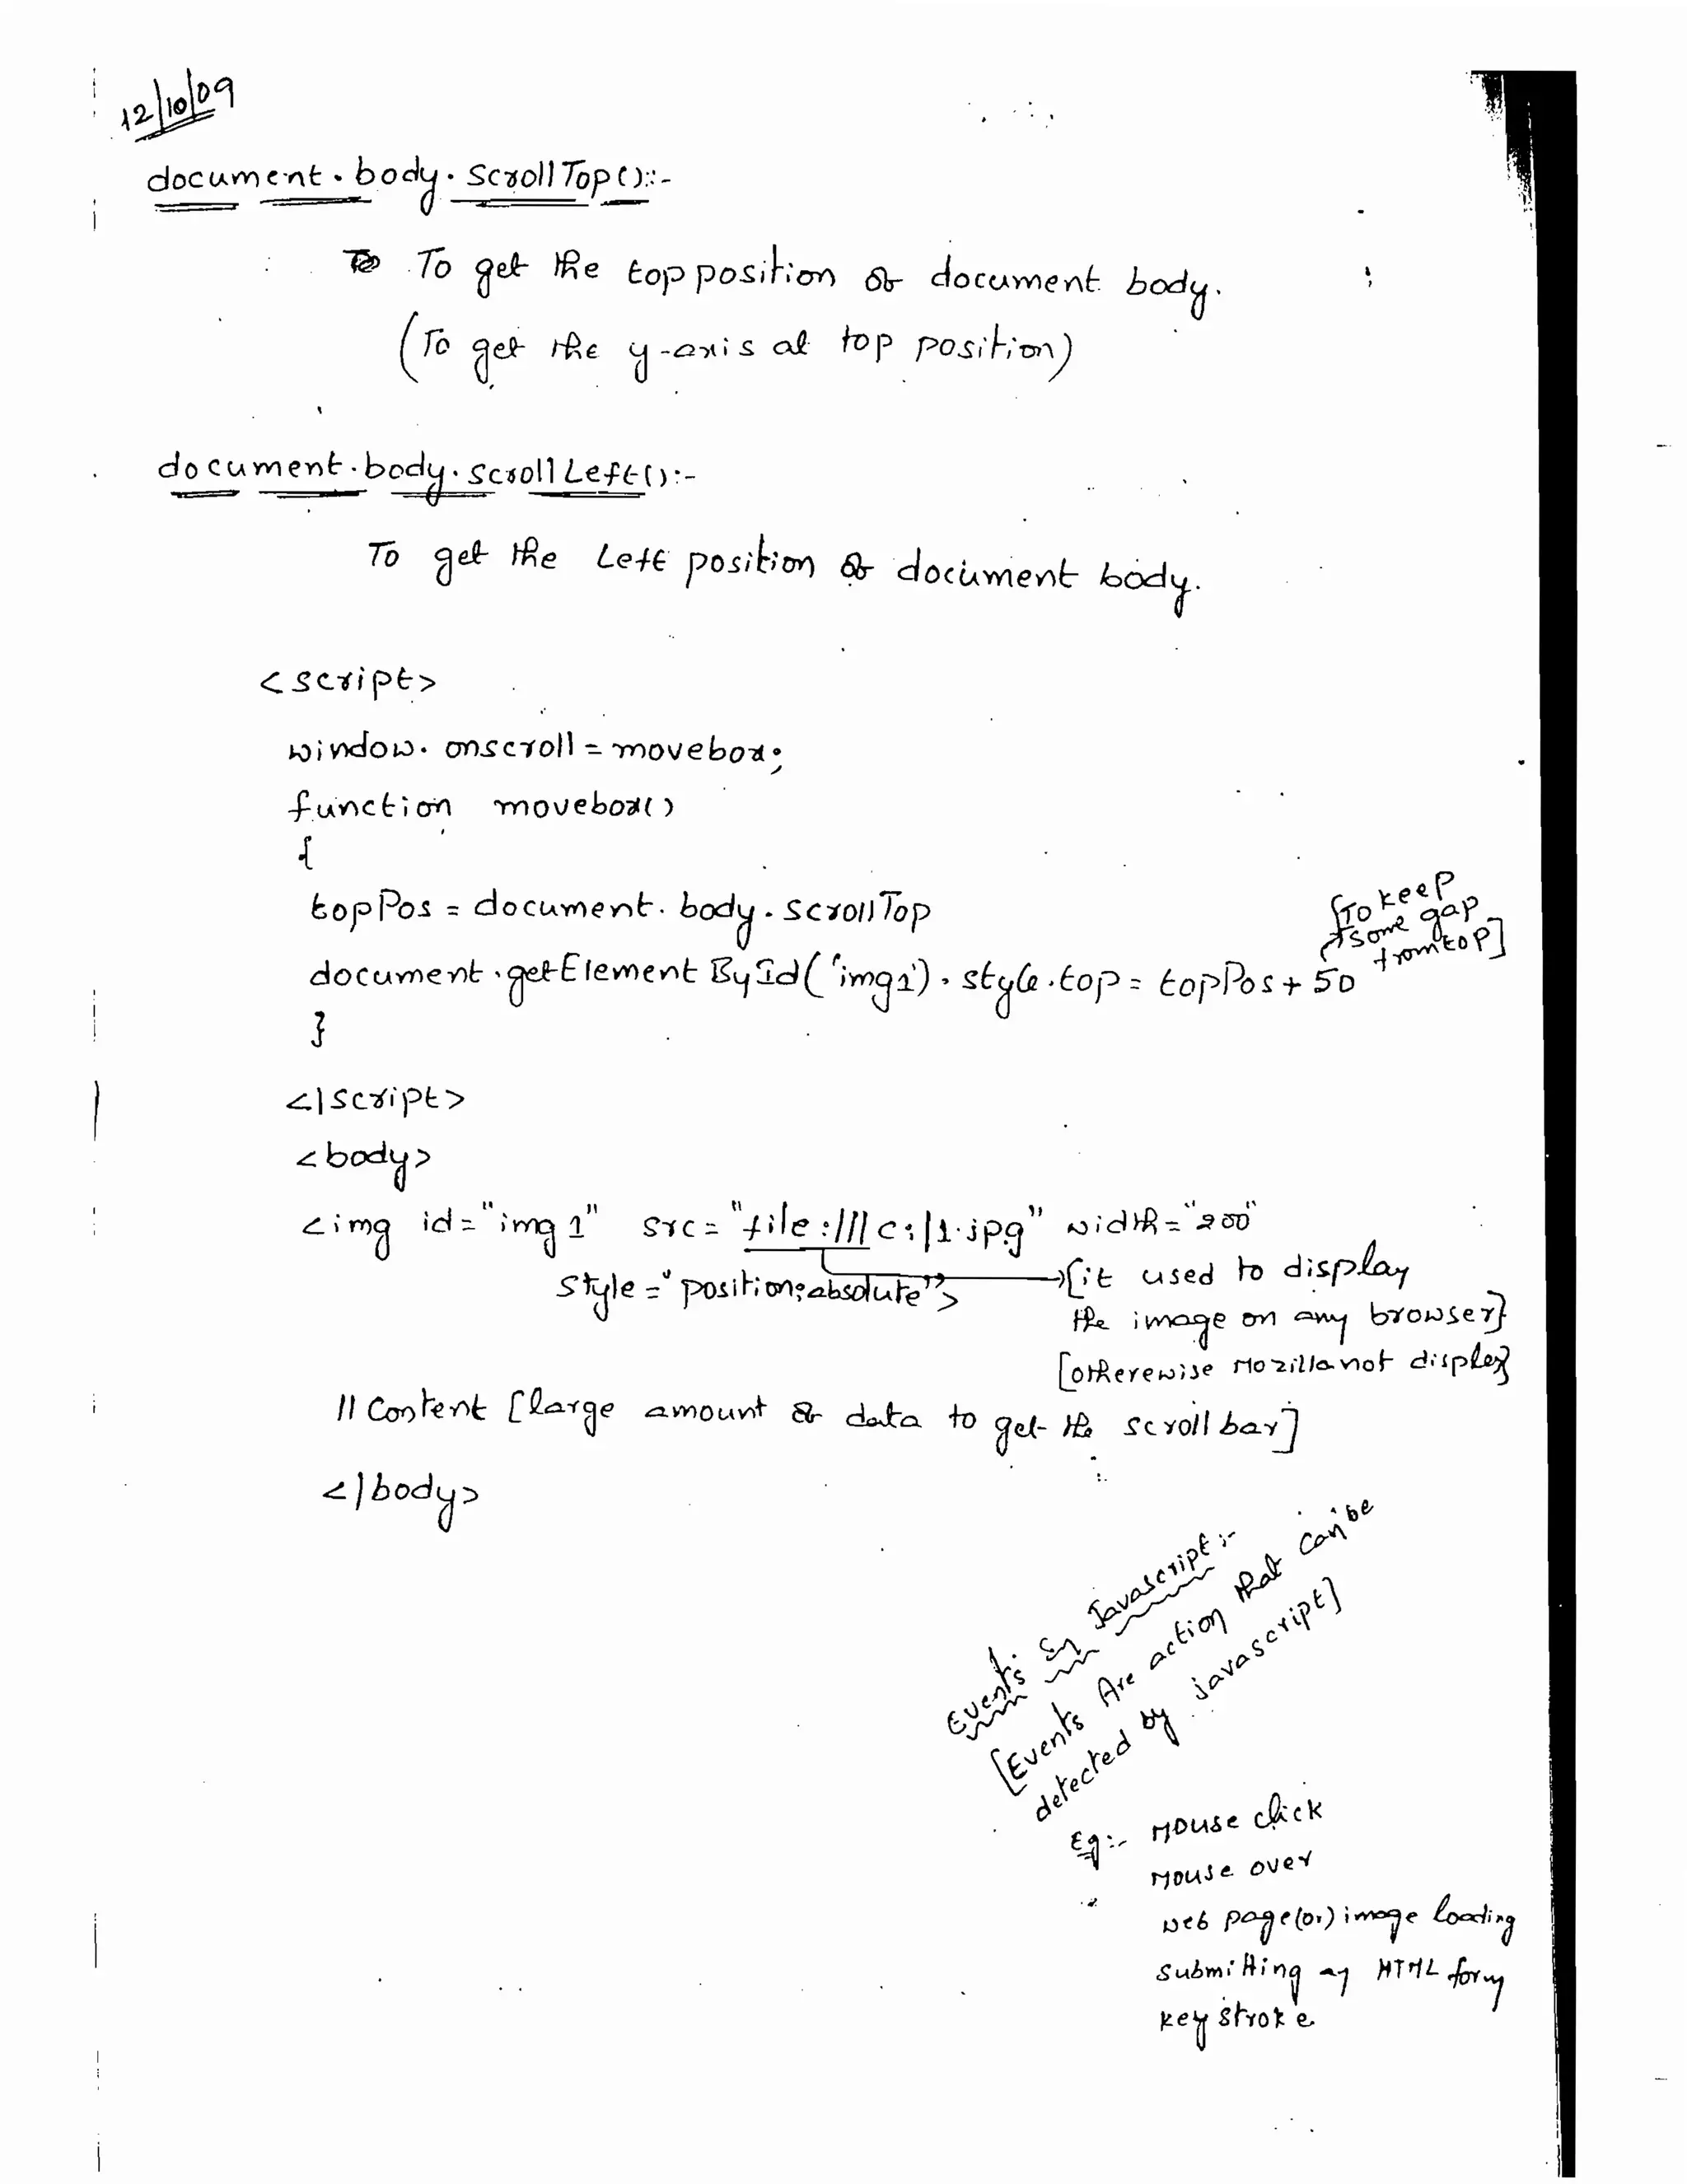 12/10/09
document.body.scrollTop()::-
To get the top position of document body.
(To get the y-axis at top position)
document.body.scrollLeft():-
To get the Left position of document body.
<script>
window.onscroll = movebox;
function movebox()
{
topPos = document.body.scrollTop
[To keep
some gap
from top]
document.getElementById('img1').style.top = topPos + 50
}
</script>
<body>
<img id="img1" src="file:///c:/1.jpg" width="200"
style="position:absolute">
[it used to display
the image on any browser}
[otherewise Mozilla not display}
// Content [large amount of data to get the scroll bar]
</body>
Events in Javascript:-
[Events Are action that can be
detected by javascript]
Eg:- Mouse click
Mouse over
web page (or) image loading
submitting HTML form
key stroke